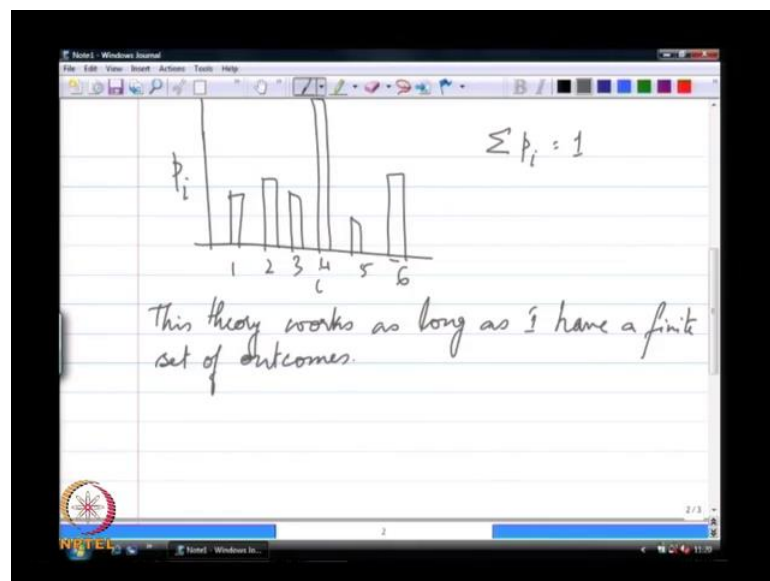 Note1 - Windows Journal
File Edit View Insert Actions Tools Help
B I
Σ p_i = 1
p_i
1 2 3 4 5 6
i
This theory works as long as I have a finite
set of outcomes.
2 / 3
2
NPTEL
Note1 - Windows Jo...
11:20